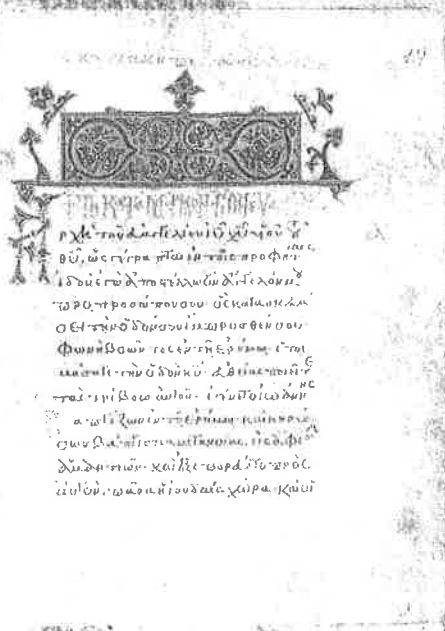 ρχὴ τοῦ εὐαγγελίου ιυ χυ υἱοῦ τοῦ
θυ, ὡς γέγραπται ἐν τοῖς προφήταις
ἰδοὺ ἐγὼ ἀποστέλλω τὸν ἄγγελόν μου
πρὸ προσώπου σου· ὃς κατασκευά
σει τὴν ὁδόν σου ἔμπροσθέν σου·
φωνὴ βοῶντος ἐν τῇ ἐρήμω· ἑτοι
μάσατε τὴν ὁδὸν κυ· εὐθείας ποιεῖτε
τὰς τρίβους αὐτοῦ· ἐγένετο ἰωάννης
βαπτίζων ἐν τῇ ἐρήμω καὶ κηρύσ
σων βάπτισμα μετανοίας εἰς ἄφεσιν
ἁμαρτιῶν· καὶ ἐξεπορεύετο πρὸς
αὐτὸν· πᾶσα ἡ ἰουδαία χώρα καὶ οἱ